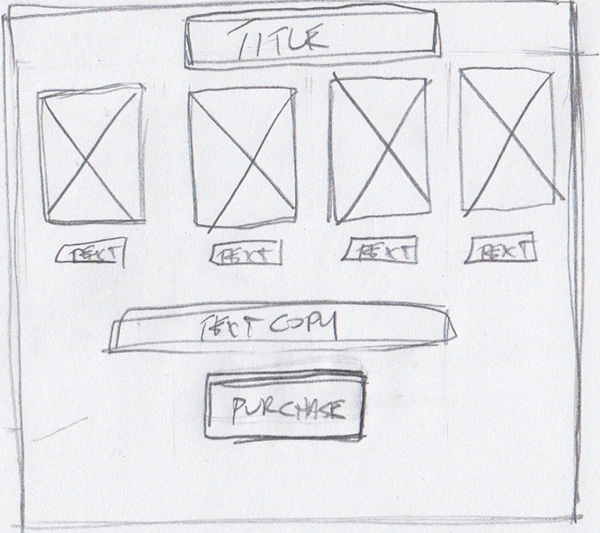 TITLE
TEXT TEXT TEXT TEXT
TEXT COPY
PURCHASE